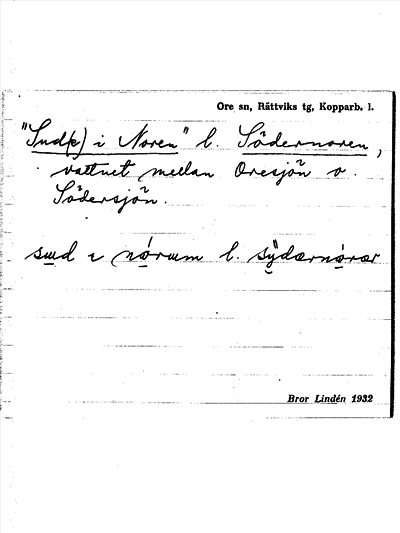 Ore sn, Rättviks tg, Kopparb. l.
"Sud(på) i Noren" l. Södernoren,
vattnet mellan Oresjön o.
Södersjön.
sud i nórum l. sÿdærnórær
Bror Lindén 1932